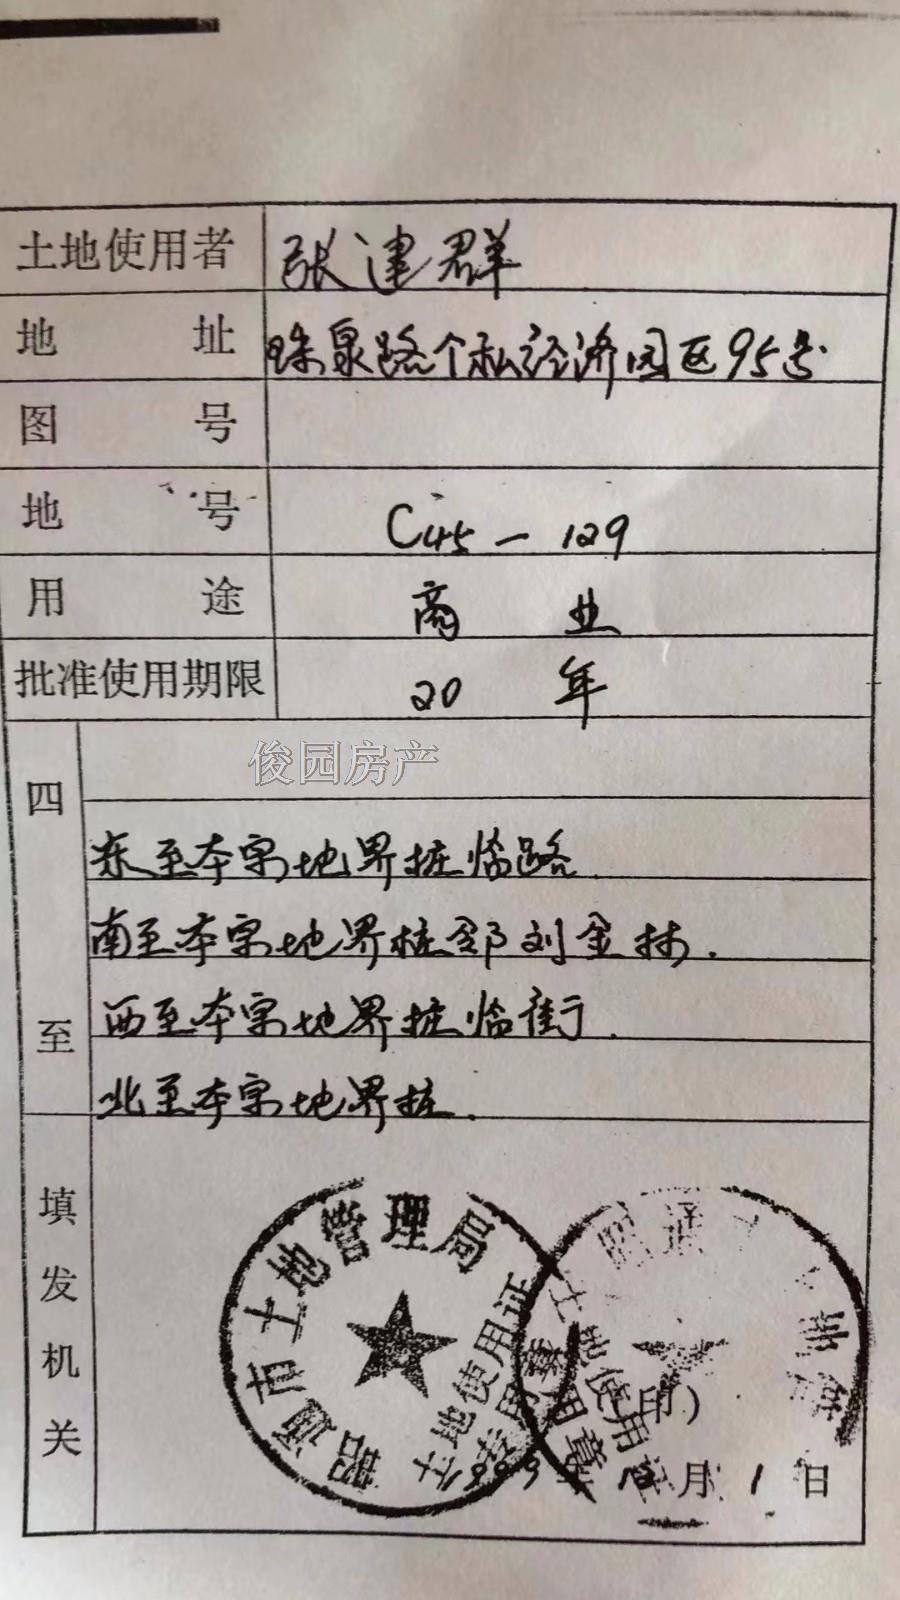 土地使用者 张建群
地址 珠泉路个私经济园区95号
图号
地号 C45-129
用途 商业
批准使用期限 20年
俊园房产
四至
东至本宗地界桩临路
南至本宗地界桩邻刘金林.
西至本宗地界桩临街.
北至本宗地界桩.
填发机关
昭通市土地管理局
土地使用证专用章
昭通
土地使用证专用章
(印)
1999年12月1日